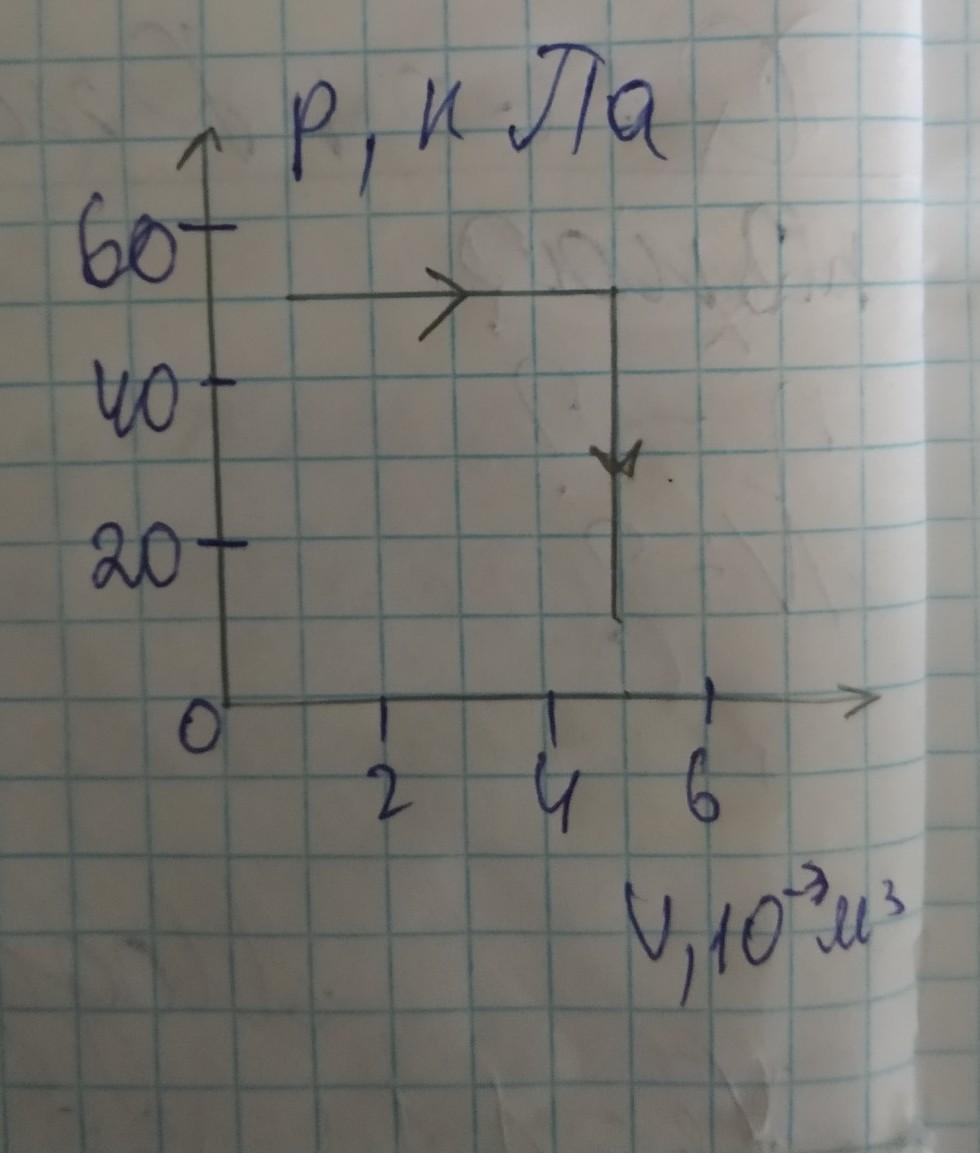 p, кПа
60
40
20
0
2 4 6
V, 10⁻³ м³